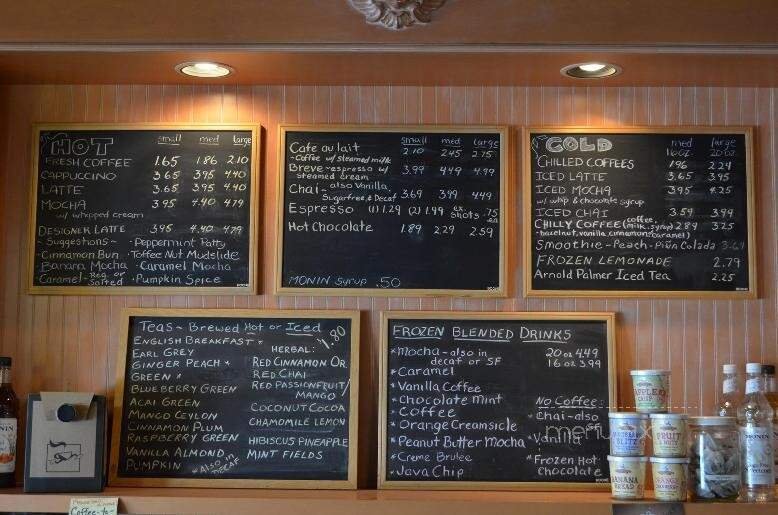 HOT small med large
FRESH COFFEE 1.65 1.86 2.10
CAPPUCCINO 3.65 3.95 4.40
LATTE 3.65 3.95 4.40
MOCHA 3.95 4.40 4.79
w/ whipped cream
DESIGNER LATTE 3.95 4.40 4.79
~Suggestions~ · Peppermint Patty
Cinnamon Bun · Toffee Nut Mudslide
Banana Mocha · Caramel Mocha
Caramel - Reg. or Salted · Pumpkin Spice
small med large
Cafe au lait 2.10 2.45 2.75
~Coffee w/ steamed milk
Breve ~espresso w/ steamed cream 3.99 4.49 4.99
Chai ~ also Vanilla, Sugarfree, & Decaf 3.69 3.99 4.49
Espresso (1) 1.29 (2) 1.99 ex. shots .75 ea
Hot Chocolate 1.89 2.29 2.59
MONIN Syrup .50
COLD med 16oz large 20oz
CHILLED COFFEES 1.96 2.24
ICED LATTE 3.65 3.95
ICED MOCHA 3.95 4.25
w/ whip & chocolate syrup
ICED CHAI 3.59 3.99
CHILLY COFFEE (coffee, milk, syrup) 2.89 3.25
-hazelnut, vanilla, cinnamon, caramel)
Smoothie ~ Peach - Piña Colada 3.69
FROZEN LEMONADE 2.79
Arnold Palmer Iced Tea 2.25
TEAS ~ BREWED Hot or Iced 1.80
ENGLISH BREAKFAST *
EARL GREY
GINGER PEACH *
GREEN *
BLUEBERRY GREEN
ACAI GREEN
MANGO CEYLON
CINNAMON PLUM
RASPBERRY GREEN
VANILLA ALMOND
PUMPKIN
*Also in decaf
HERBAL:
RED CINNAMON OR.
RED CHAI
RED PASSIONFRUIT/
MANGO
COCONUT COCOA
CHAMOMILE LEMON
HIBISCUS PINEAPPLE
MINT FIELDS
FROZEN BLENDED DRINKS
*Mocha - also in decaf or SF
*Caramel
*Vanilla Coffee
*Chocolate Mint
*Coffee
*Orange Creamsicle
*Peanut Butter Mocha
*Creme Brulee
*Java Chip
20 oz 4.49
16 oz 3.99
No Coffee:
*Chai - also SF
*Vanilla
*Frozen Hot Chocolate
menu
APPLE CRISP
BLUEBERRY BLITZ
FRUIT & NUT
BANANA BREAD
ORANGE CRANBERRY
MONIN
MONIN
Coffee-to-